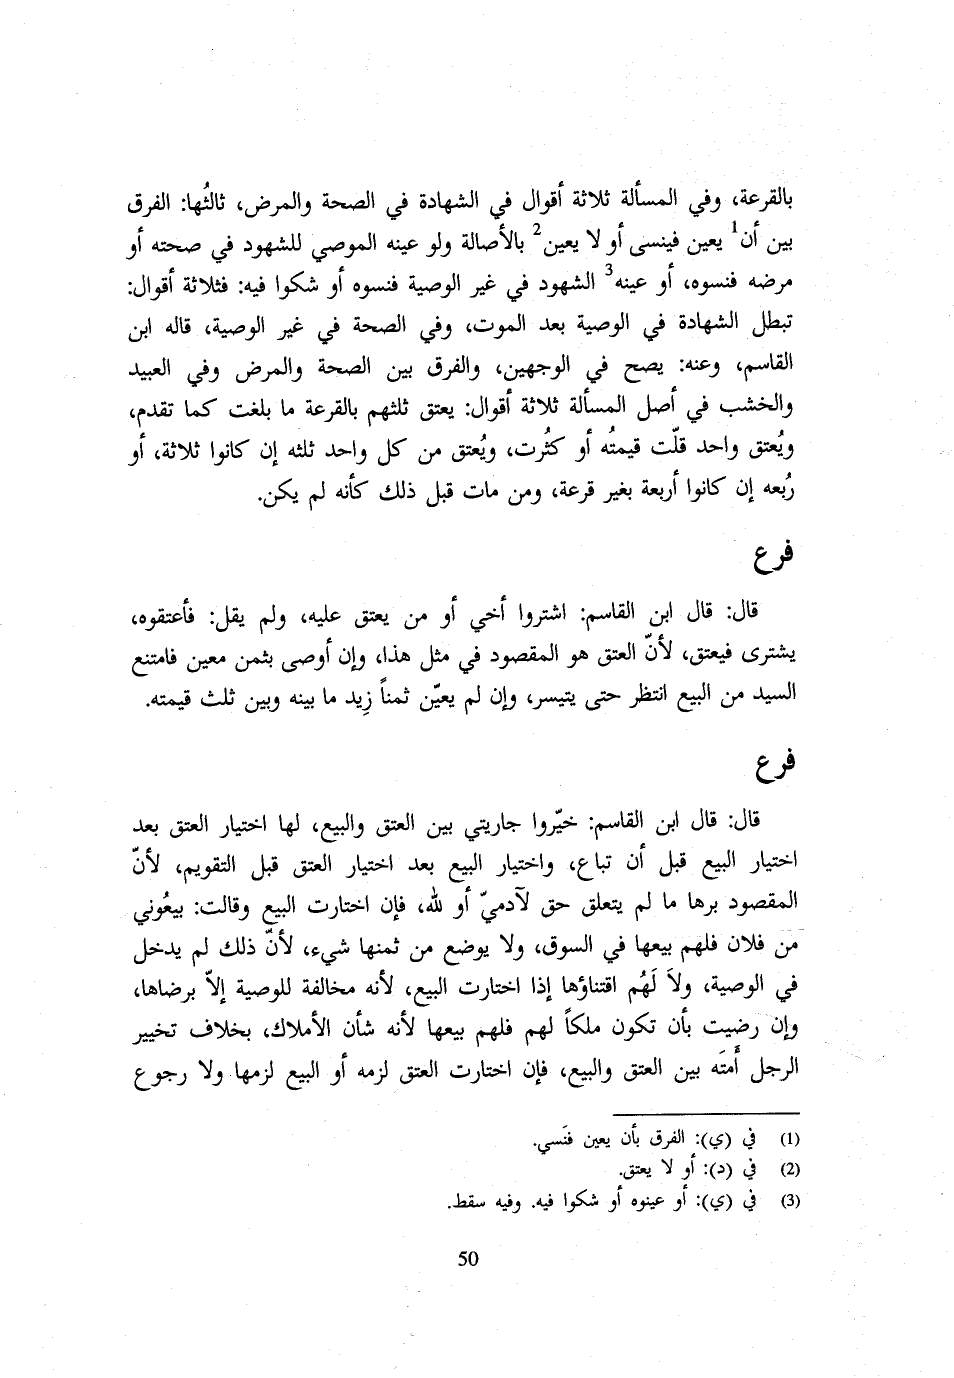 بالقرعة، وفي المسألة ثلاثة أقوال في الشهادة في الصحة والمرض، ثالثُها: الفرق
بين أن1 يعين فينسى أو لا يعين2 بالأصالة ولو عينه الموصي للشهود في صحته أو
مرضه فنسوه، أو عينه3 الشهود في غير الوصية فنسوه أو شكوا فيه: فثلاثة أقوال:
تبطل الشهادة في الوصية بعد الموت، وفي الصحة في غير الوصية، قاله ابن
القاسم، وعنه: يصح في الوجهين، والفرق بين الصحة والمرض وفي العبيد
والخشب في أصل المسألة ثلاثة أقوال: يعتق ثلثهم بالقرعة ما بلغت كما تقدم،
ويُعتق واحد قلّت قيمتُه أو كثُرت، ويُعتق من كل واحد ثلثه إن كانوا ثلاثة، أو
رُبعه إن كانوا أربعة بغير قرعة، ومن مات قبل ذلك كأنه لم يكن.
فرع
قال: قال ابن القاسم: اشتروا أخي أو من يعتق عليه، ولم يقل: فأعتقوه،
يشترى فيعتق، لأنّ العتق هو المقصود في مثل هذا، وإن أوصى بثمن معين فامتنع
السيد من البيع انتظر حتى يتيسر، وإن لم يعيّن ثمناً زِيد ما بينه وبين ثلث قيمته.
فرع
قال: قال ابن القاسم: خيّروا جاريتي بين العتق والبيع، لها اختيار العتق بعد
اختيار البيع قبل أن تباع، واختيار البيع بعد اختيار العتق قبل التقويم، لأنّ
المقصود برها ما لم يتعلق حق لآدميّ أو لله، فإن اختارت البيع وقالت: بيعُوني
من فلان فلهم بيعها في السوق، ولا يوضع من ثمنها شيء، لأنّ ذلك لم يدخل
في الوصية، ولاَ لَهُم اقتناؤها إذا اختارت البيع، لأنه مخالفة للوصية إلاّ برضاها،
وإن رضيت بأن تكون ملكاً لهم فلهم بيعها لأنه شأن الأملاك، بخلاف تخيير
الرجل أَمتَه بين العتق والبيع، فإن اختارت العتق لزمه أو البيع لزمها ولا رجوع
(1) في (ي): الفرق بأن يعين فنَسي.
(2) في (د): أو لا يعتق.
(3) في (ي): أو عينوه أو شكوا فيه. وفيه سقط.
50